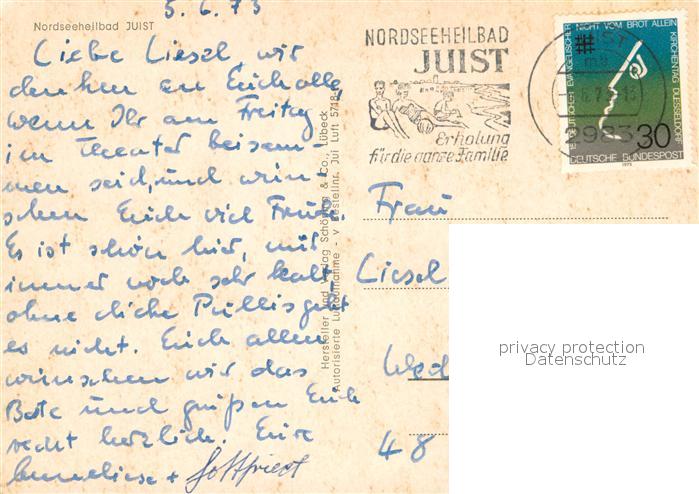 5.6.73
Nordseeheilbad JUIST
Liebe Liesel, wir
denken an Euch alle,
wenn Ihr am Freitag
im Theater beisam-
men seid, und wün-
schen Euch viel Freude.
Es ist schön hier, nur
immer noch sehr kalt,
ohne dicke Pullis geht
es nicht. Euch allen
wünschen wir das
Beste und grüßen Euch
recht herzlich. Eure
Anneliese + Gottfried
Hersteller und Verlag Schöning & Co., Lübeck
Autorisierte Luftaufnahme - v Bestellnr. Jui Luft 5718
NORDSEEHEILBAD
JUIST
Erholung
für die ganze Familie
JUIST
2983
DEUTSCHER EVANGELISCHER KIRCHENTAG DUESSELDORF
NICHT VOM BROT ALLEIN
30
DEUTSCHE BUNDESPOST
1973
Frau
Liesel
48
privacy protection
Datenschutz